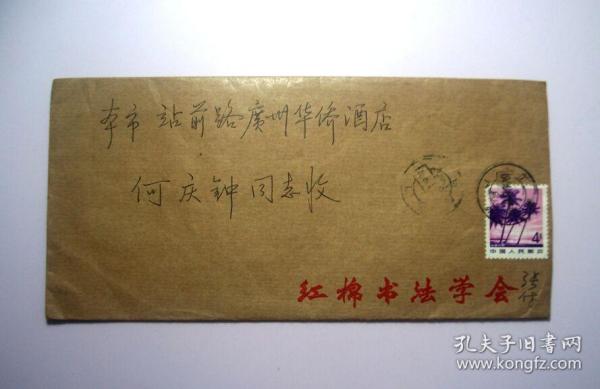 本市 站前路廣州华侨酒店
何庆钟同志收
4
中国人民邮政
红棉书法学会
张付
孔夫子旧书网
www.kongfz.com